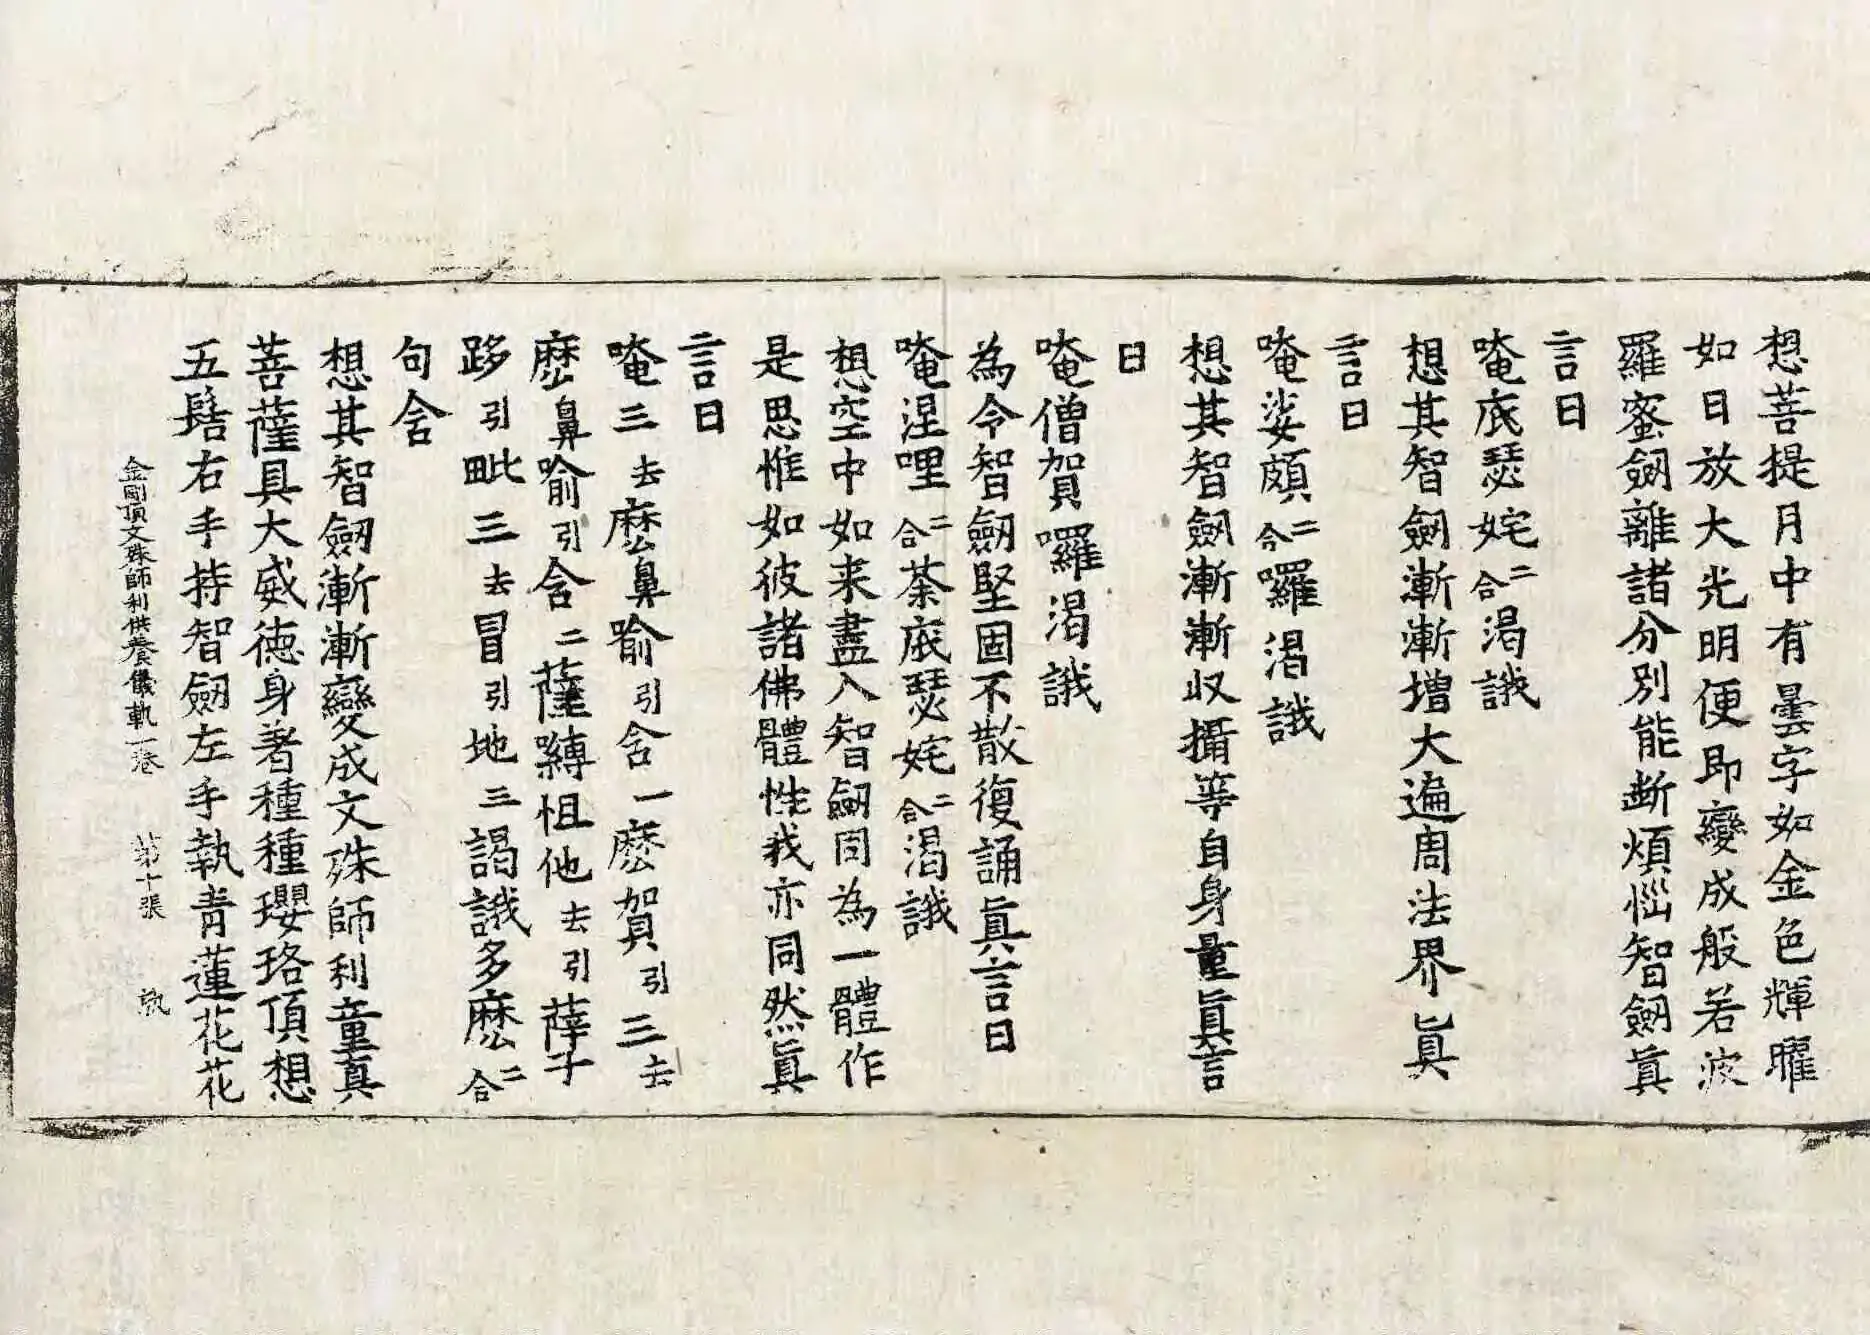 想菩提月中有曇字如金色輝曜
如日放大光明便即變成般若波
羅蜜劒離諸分別能断煩惱智劒真
言曰
唵底瑟姹二合渇誐
想其智劒漸漸增大遍周法界真
言曰
唵娑頗二合囉渇誐
想其智劒漸漸収攝等自身量真言
曰
唵僧賀囉渇誐
為令智劒堅固不散復誦真言曰
唵涅哩二合荼底瑟姹二合渇誐
想空中如来盡入智劒同為一體作
是思惟如彼諸佛體性我亦同然真
言曰
唵三去麽鼻喻引含一麽賀引三去
麽鼻喻引含二薩嚩怛他去引孽
跢引毗三去冒引地三謁誐多麽二合
句含
想其智劒漸漸變成文殊師利童真
菩薩具大威德身著種種瓔珞頂想
五髻右手持智劒左手執青蓮花花
金剛頂文殊師利供養儀軌一卷 第十張